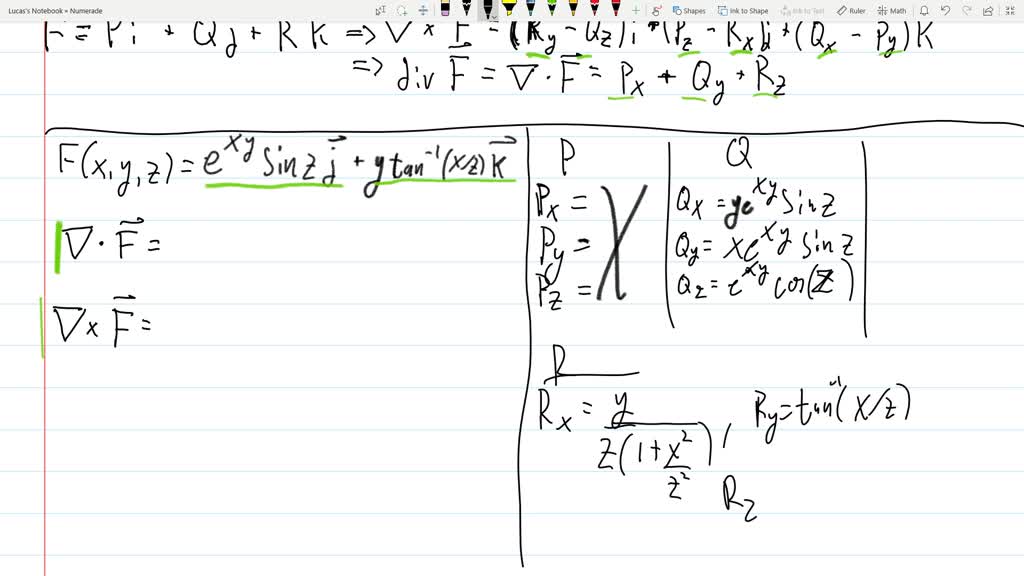 Lucas's Notebook » Numerade
Shapes Ink to Shape Ink to Text Ruler Math
F = Pi + Qj + RK => ∇ × F = (Ry - Qz)i + (Pz - Rx)j + (Qx - Py)K
=> div F = ∇ · F = Px + Qy + Rz
F(x,y,z) = e^xy sin z j + y tan^-1(x/z) K
∇ · F =
∇ × F =
P
Px =
Py =
Pz =
Q
Qx = ye^xy sin z
Qy = xe^xy sin z
Qz = e^xy cos(z)
R
Rx = y / z(1 + x²/z²) , Ry = tan^-1(x/z)
Rz